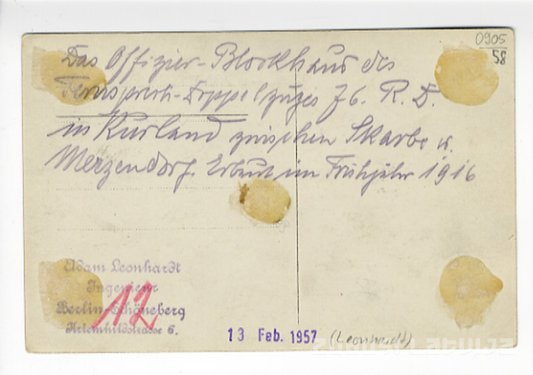 0905
58
Das Offizier-Blockhaus des
Fernsprech-Doppelzuges 76. R. D.
in Kurland zwischen Skarbe u.
Merzendorf. Erbaut im Frühjahr 1916
Adam Leonhardt
Ingenieur
Berlin-Schöneberg
Kriemhildstrasse 6.
12
13 Feb. 1957 (Leonhardt)